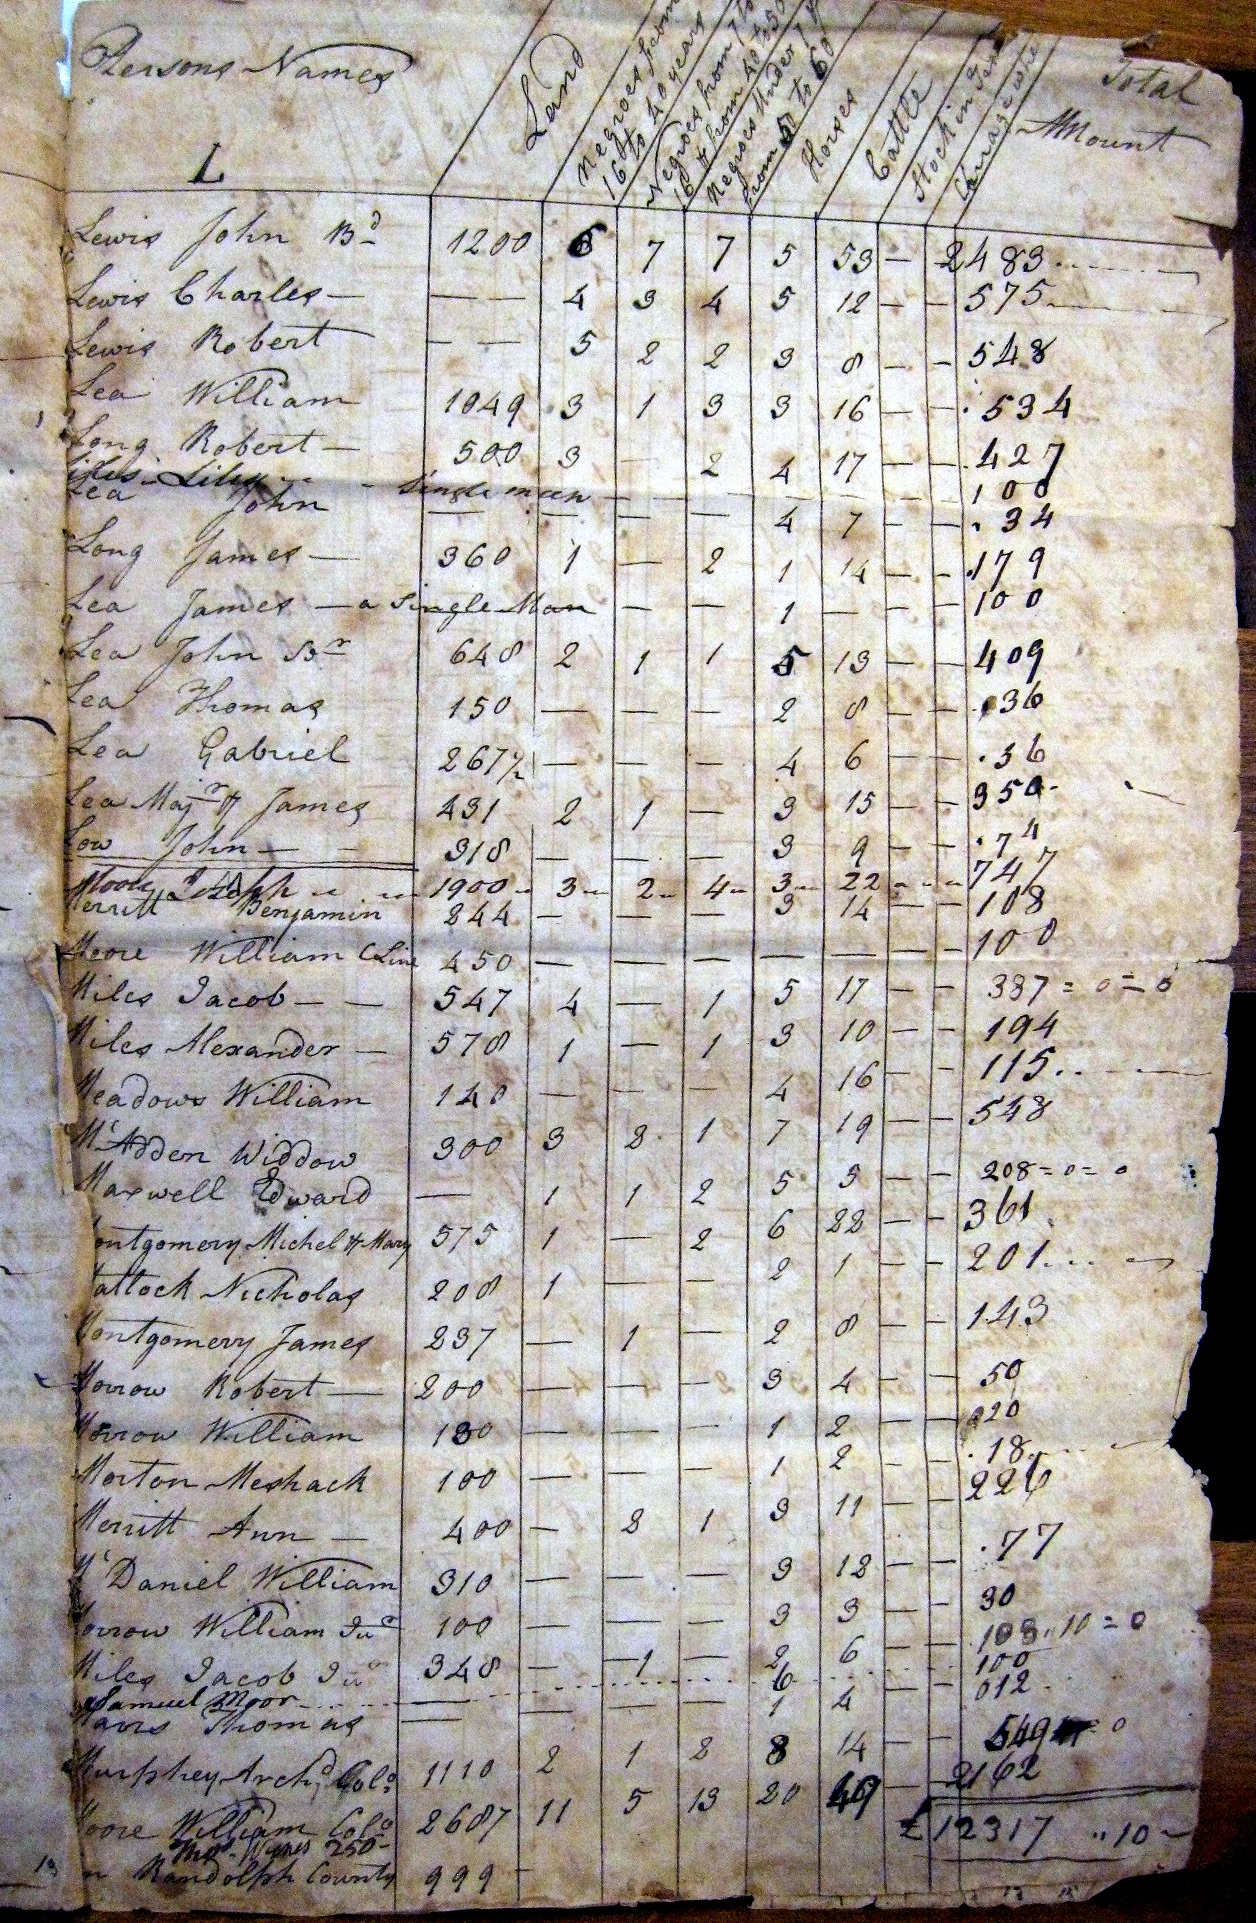 Persons Names Land Negroes from 16 to 40 years Negroes from 7 to 16 & from 40 to 50 Negroes Under 7 & from 50 to 60 Horses Cattle Stock in Carriage Total Amount
L
Lewis John Bd 1200 6 7 7 5 53 — 2483
Lewis Charles — — — 4 3 4 5 12 — — 575
Lewis Robert — — 5 2 2 3 8 — — 548
Lea William 1049 3 1 3 3 16 — — 534
Long Robert — 500 3 — 2 4 17 — — 427
Lily Single man — — — 100
Lea John — — — — 4 7 — — 34
Long James — 360 1 — 2 1 14 — — 179
Lea James — a Single Man — — 1 — — — 100
Lea John Sr 648 2 1 1 5 13 — — 409
Lea Thomas 150 — — — 2 8 — — 36
Lea Gabriel 267½ — — — 4 6 — — 36
Lea Majr & James 431 2 1 — 3 15 — — 350
Low John — — 318 — — — 3 9 — — 74
Moore 1900 3 2 4 3 22 747
Merritt Benjamin 244 — — — 3 14 — — 108
Moore William C Line 450 — — — — — — — 100
Miles Jacob — — 547 4 — 1 5 17 — — 387 = 0 = 0
Miles Alexander — 578 1 — 1 3 10 — — 194
Meadows William 140 — — — 4 16 — — 115
McAdden Widdow 300 3 2 1 7 19 — — 548
Maxwell Edward — 1 1 2 5 5 — — 208 = 0 = 0
ontgomery Michel & Mary 575 1 — 2 6 22 — — 361
atlock Nicholas 208 1 — — 2 1 — — 201
ontgomery James 237 — 1 — 2 8 — — 143
Morrow Robert — 200 — — — 3 4 — — 50
Morrow William 130 — — — 1 2 — — 20
Morton Meshack 100 — — — 1 2 — — 18
Merritt Ann — 400 — 2 1 3 11 — — 226
McDaniel William 310 — — — 3 12 — — 77
orrow William Jur 100 — — — 3 3 — — 30
Miles Jacob Jur 348 — 1 — 2 6 — — 103 " 10 = 0
Samuel Moor 6 100
Thomas — — — — 1 4 — — 012
Murphey Archd Colo 1110 2 1 2 8 14 — — 549 = 0
Moore William Colo 2687 11 5 13 20 49 — 2162
Thos. 250
n Randolph County 999 — £12317 " 10 —